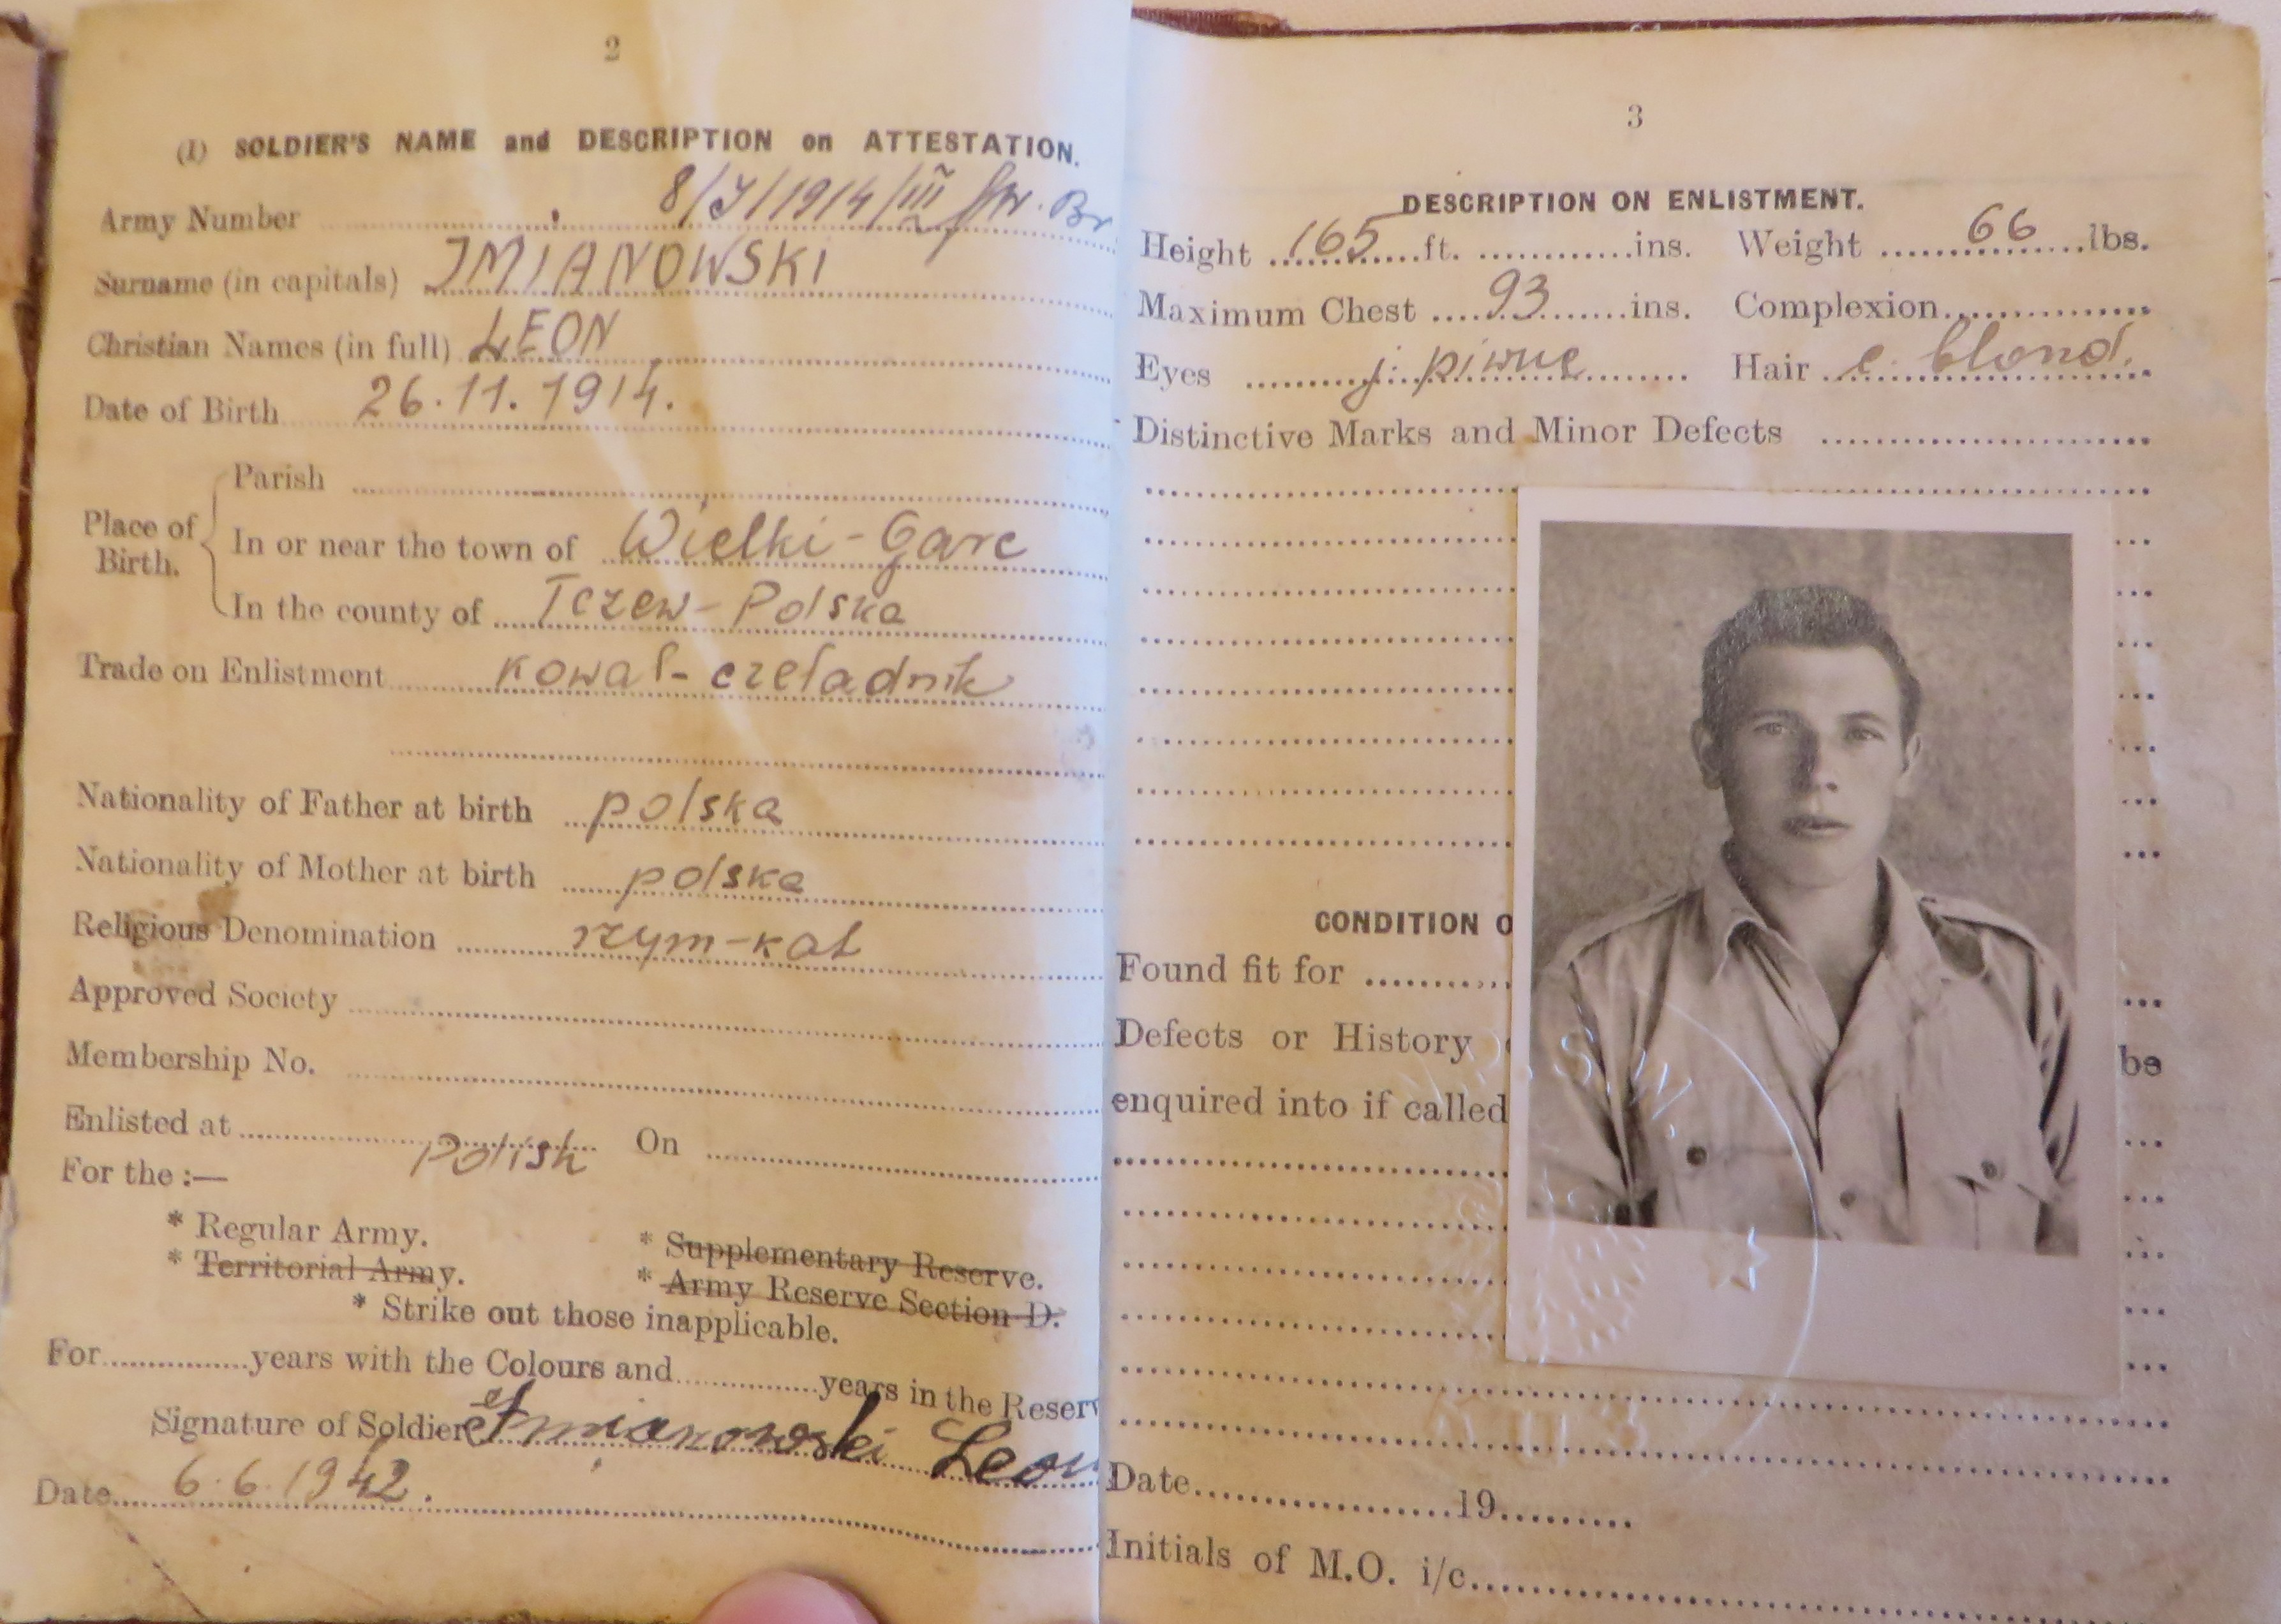 2
(I) SOLDIER'S NAME and DESCRIPTION on ATTESTATION.
Army Number 8/J/1914/III
Surname (in capitals) IMIANOWSKI
Christian Names (in full) LEON
Date of Birth 26.11.1914.
Place of Birth.
Parish
In or near the town of Wielki-Garc
In the county of Tczew-Polska
Trade on Enlistment kowal-czeladnik
Nationality of Father at birth polska
Nationality of Mother at birth polska
Religious Denomination rzym-kat
Approved Society
Membership No.
Enlisted at On
For the :— Polish
* Regular Army.
* Supplementary Reserve.
* Territorial Army.
* Army Reserve Section D.
* Strike out those inapplicable.
For years with the Colours and years in the Reserv
Signature of Soldier Imianowski Leon
Date 6.6.1942.
3
DESCRIPTION ON ENLISTMENT.
Height 165 ft. ins. Weight 66 lbs.
Maximum Chest 93 ins. Complexion
Eyes j. piwne Hair c. blond.
Distinctive Marks and Minor Defects
CONDITION O
Found fit for
Defects or History
be
enquired into if called
Date 19
Initials of M.O. i/c